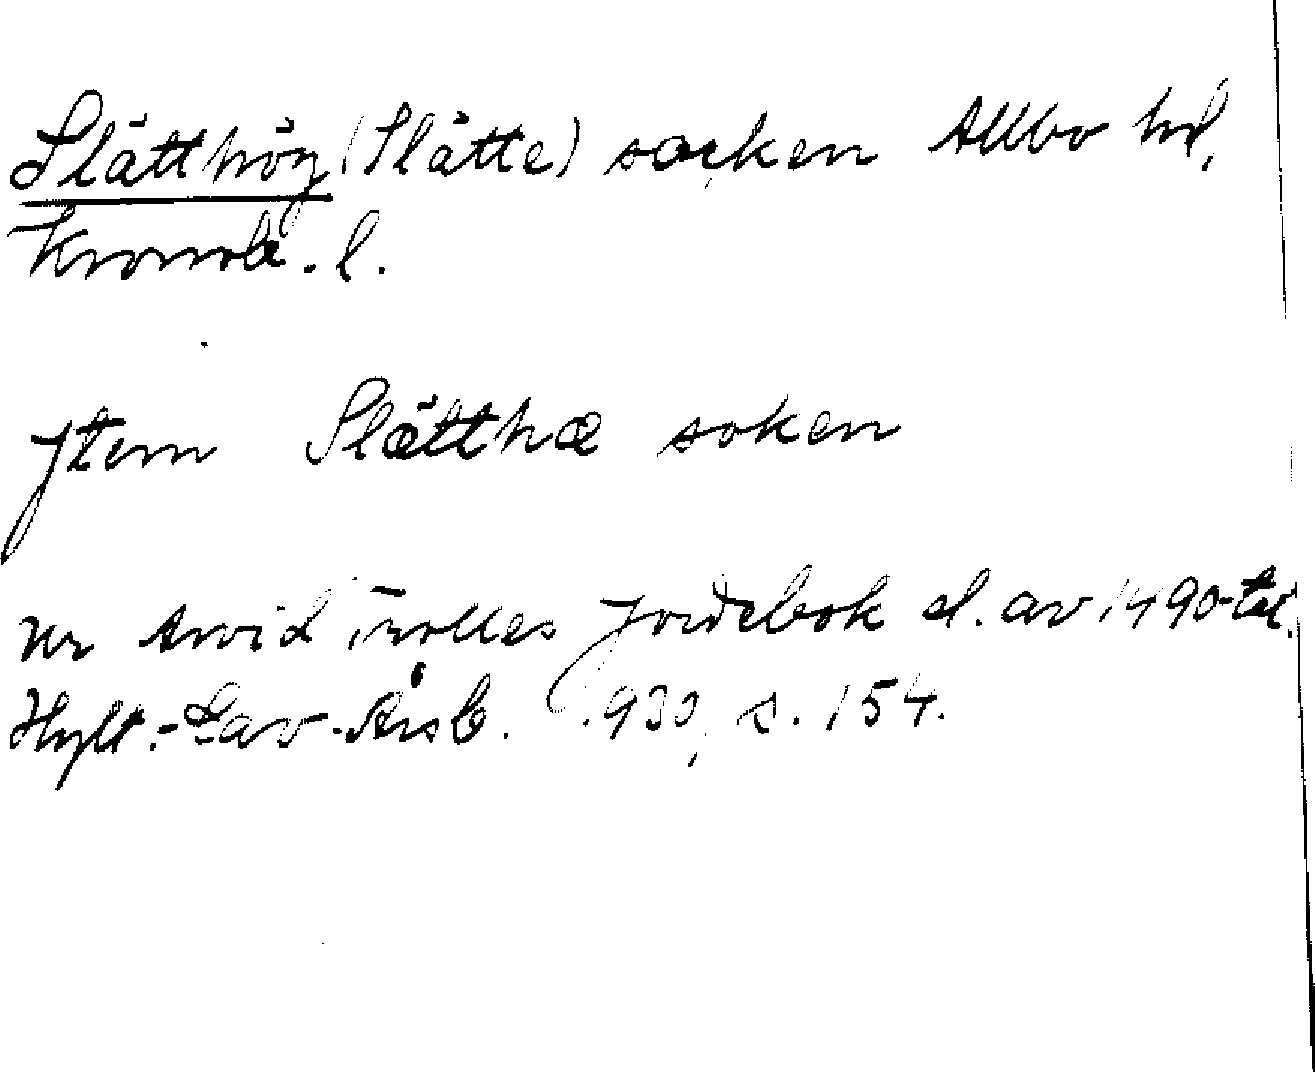 Slätthög (Slätte) socken Allbo hd,
Kronob. l.
Jtem Slätthæ soken
Ur Arvid Trolles Jordebok sl. av 1490-tal.
Hylt.-Cav.-Årsb. 1930, s. 154.